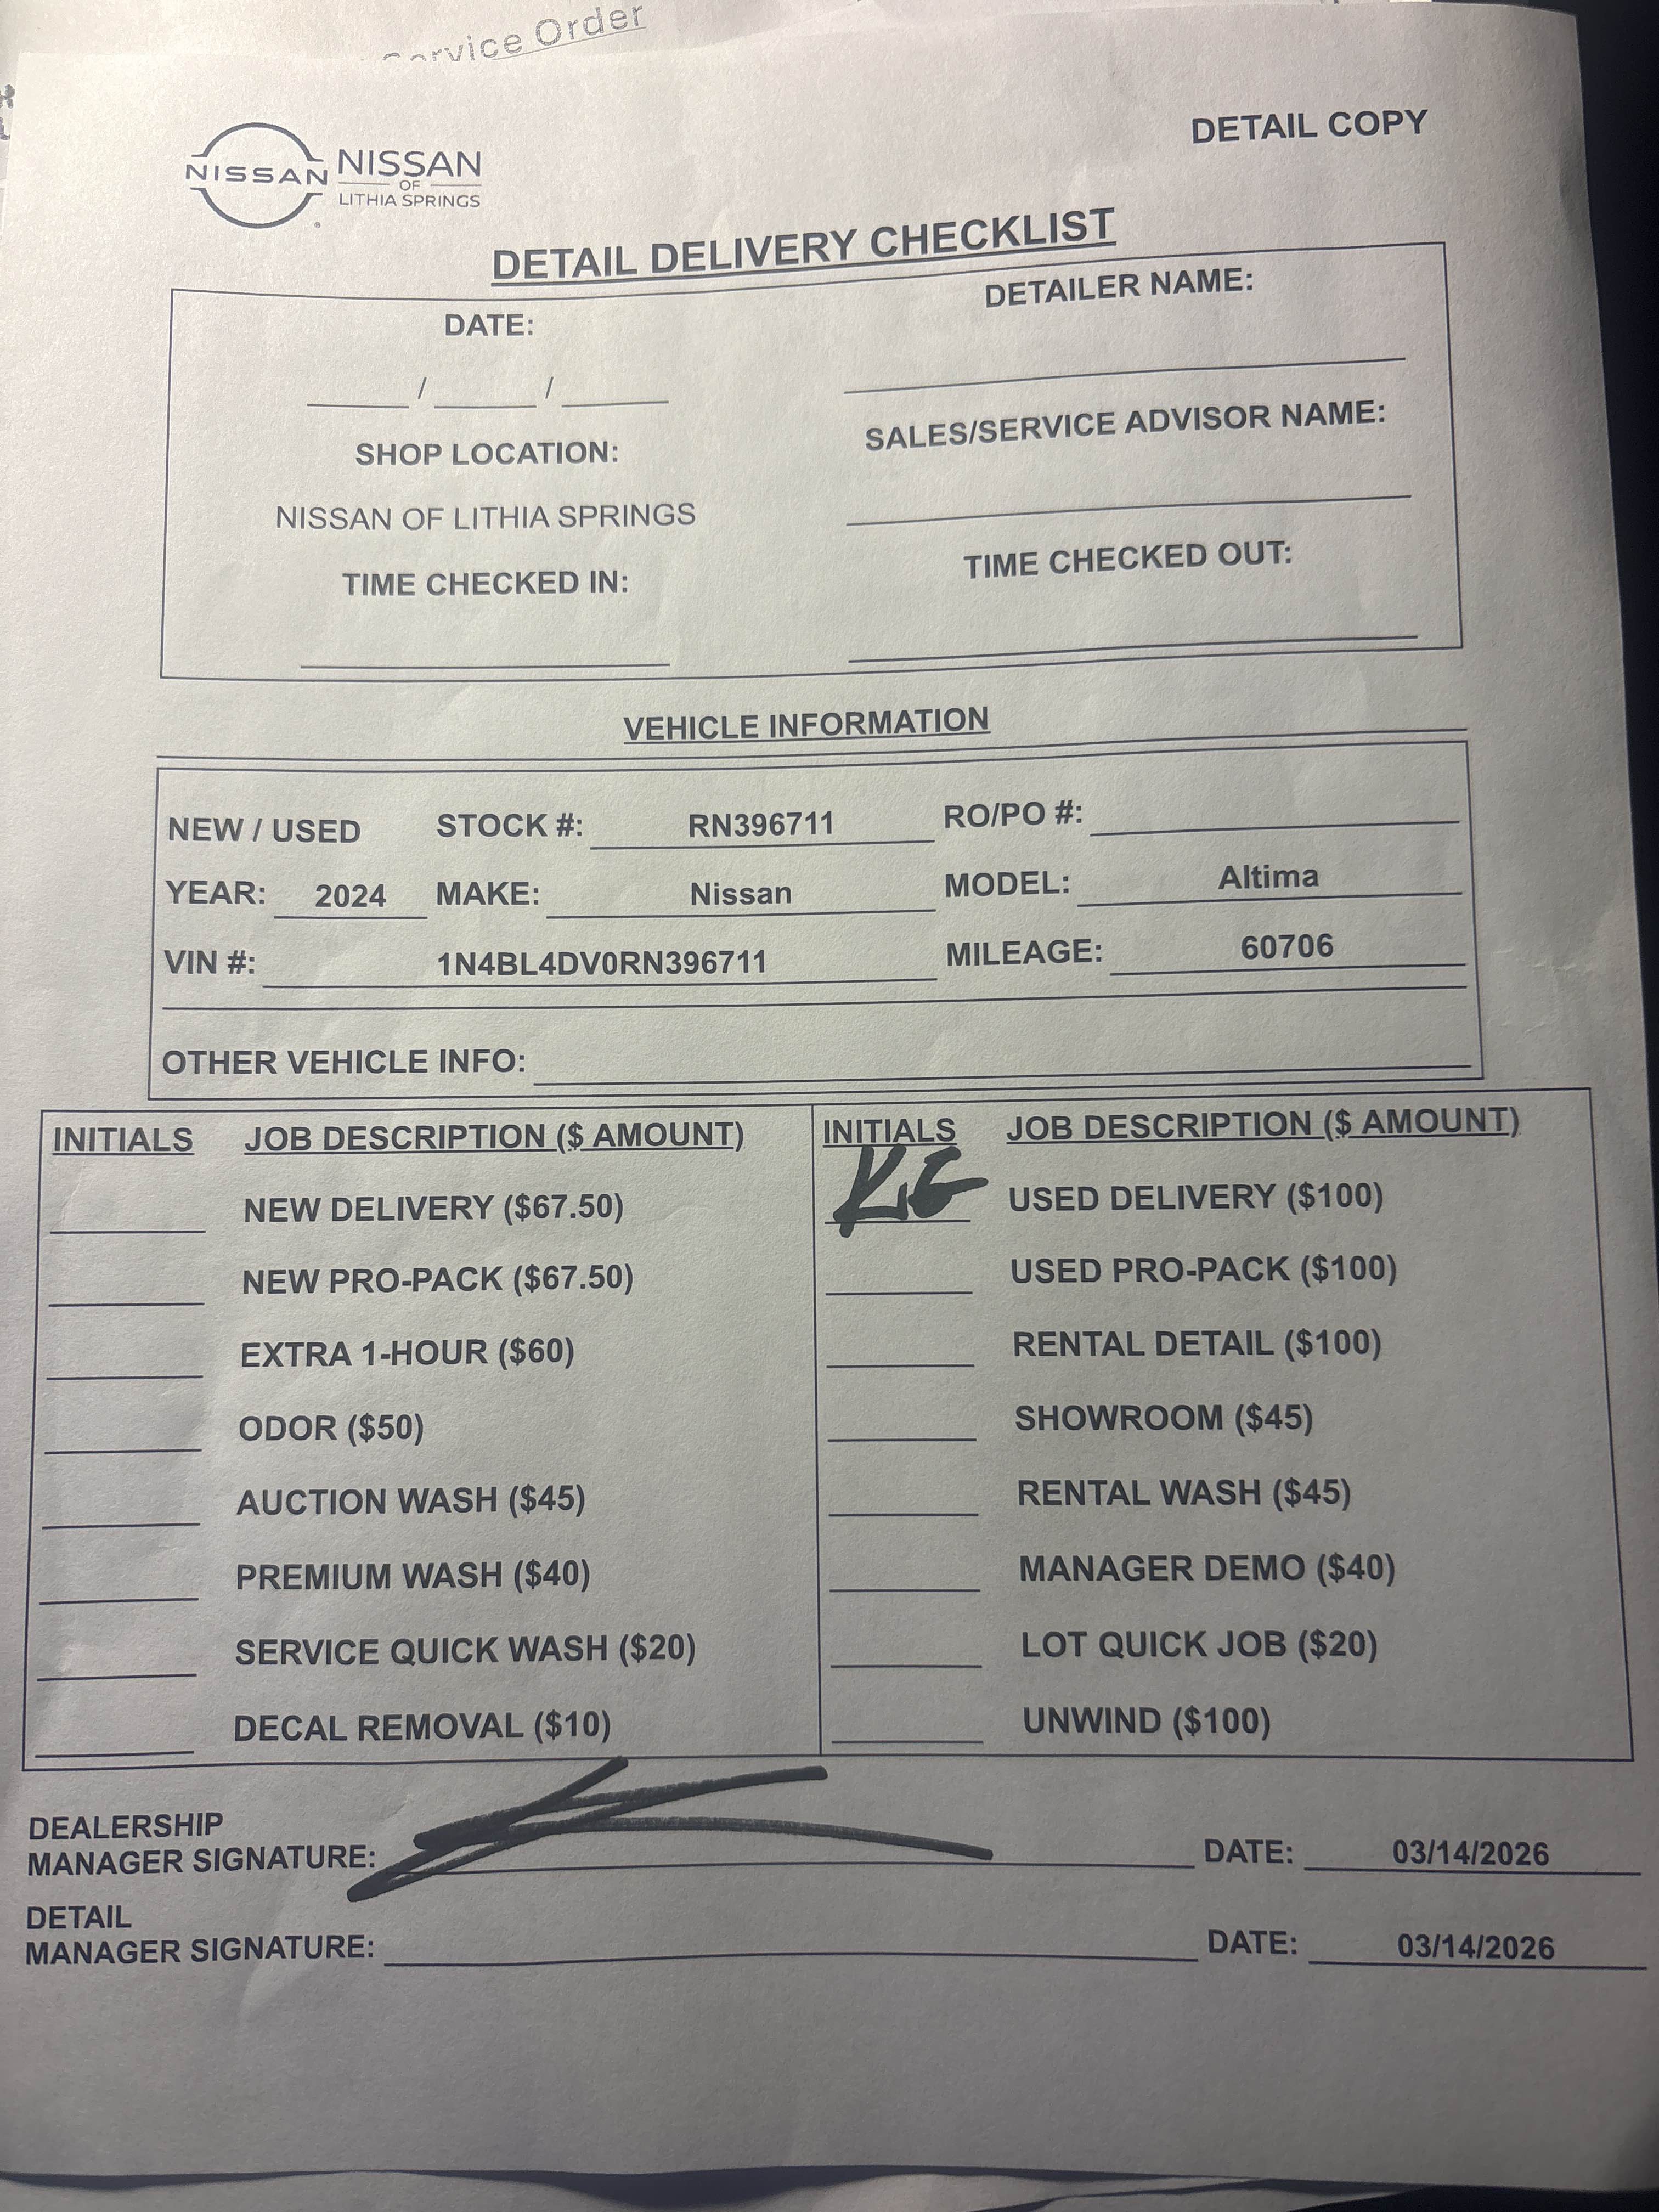 Service Order
DETAIL COPY
NISSAN NISSAN
OF
LITHIA SPRINGS
DETAIL DELIVERY CHECKLIST
DATE:
DETAILER NAME:
/ /
SHOP LOCATION:
SALES/SERVICE ADVISOR NAME:
NISSAN OF LITHIA SPRINGS
TIME CHECKED IN:
TIME CHECKED OUT:
VEHICLE INFORMATION
NEW / USED STOCK #: RN396711 RO/PO #:
YEAR: 2024 MAKE: Nissan MODEL: Altima
VIN #: 1N4BL4DV0RN396711 MILEAGE: 60706
OTHER VEHICLE INFO:
INITIALS JOB DESCRIPTION ($ AMOUNT) INITIALS JOB DESCRIPTION ($ AMOUNT)
NEW DELIVERY ($67.50) KG USED DELIVERY ($100)
NEW PRO-PACK ($67.50) USED PRO-PACK ($100)
EXTRA 1-HOUR ($60) RENTAL DETAIL ($100)
ODOR ($50) SHOWROOM ($45)
AUCTION WASH ($45) RENTAL WASH ($45)
PREMIUM WASH ($40) MANAGER DEMO ($40)
SERVICE QUICK WASH ($20) LOT QUICK JOB ($20)
DECAL REMOVAL ($10) UNWIND ($100)
DEALERSHIP
MANAGER SIGNATURE: DATE: 03/14/2026
DETAIL
MANAGER SIGNATURE: DATE: 03/14/2026